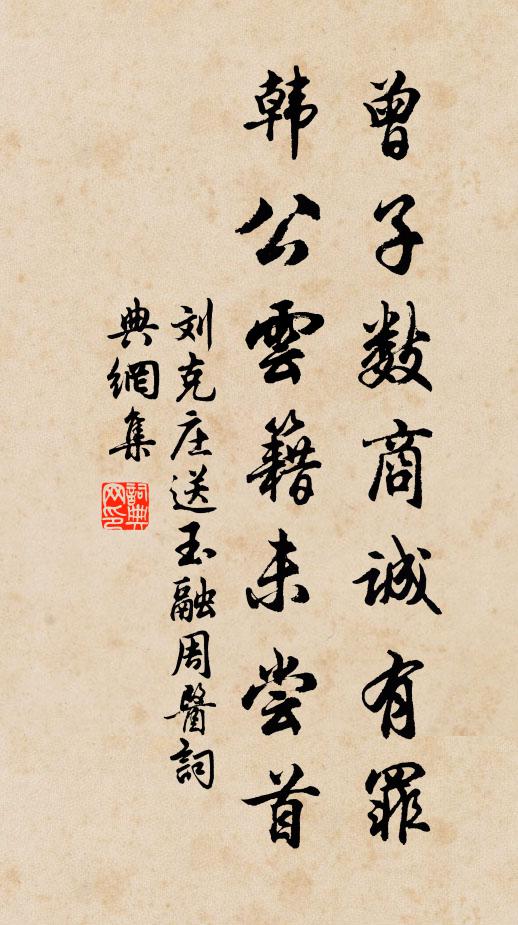 曾子数商诚有罪
韩公雲籍未尝首
刘克庄送玉融周醫詞
典網集
詞典網印